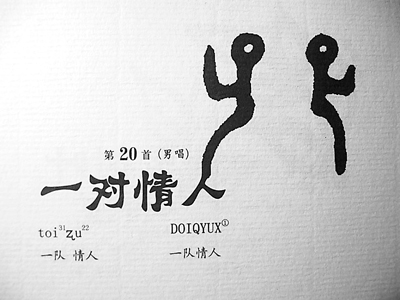 第 20 首（男唱）
一对情人
toi³¹ʐu²² DOIQYUX①
一队 情人 一队情人